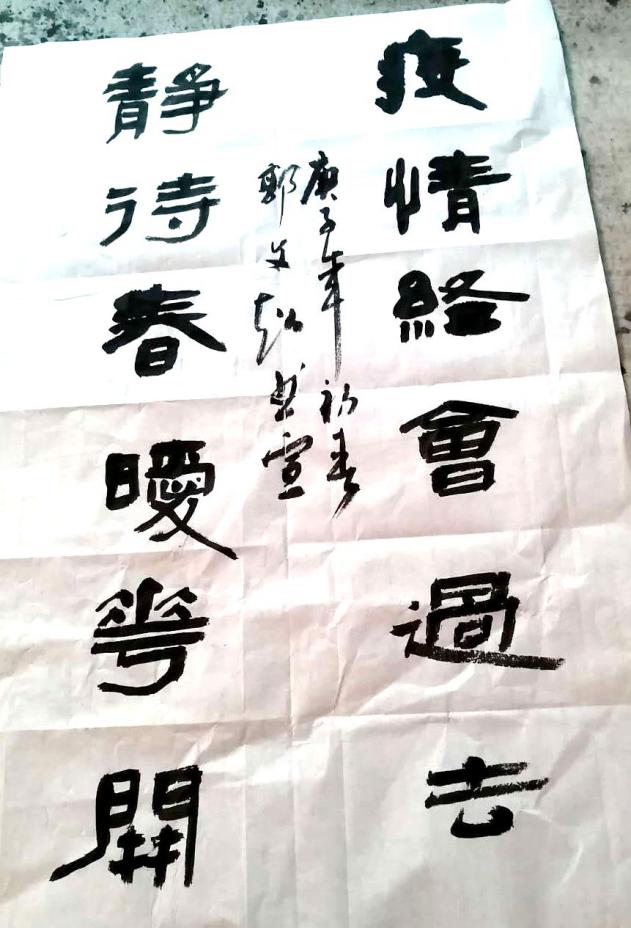 疫情経會過去
庚子年初春
郭文
靜待春曖花開